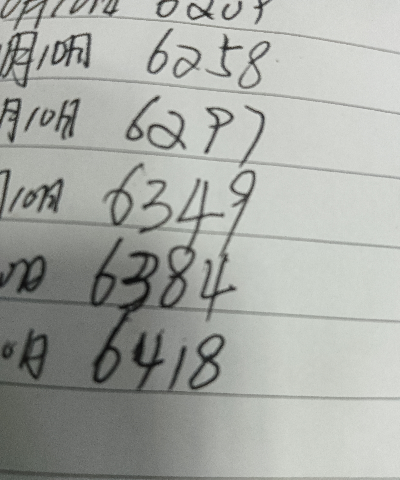 月10日 6258
月10日 6297
10日 6349
日 6384
0日 6418